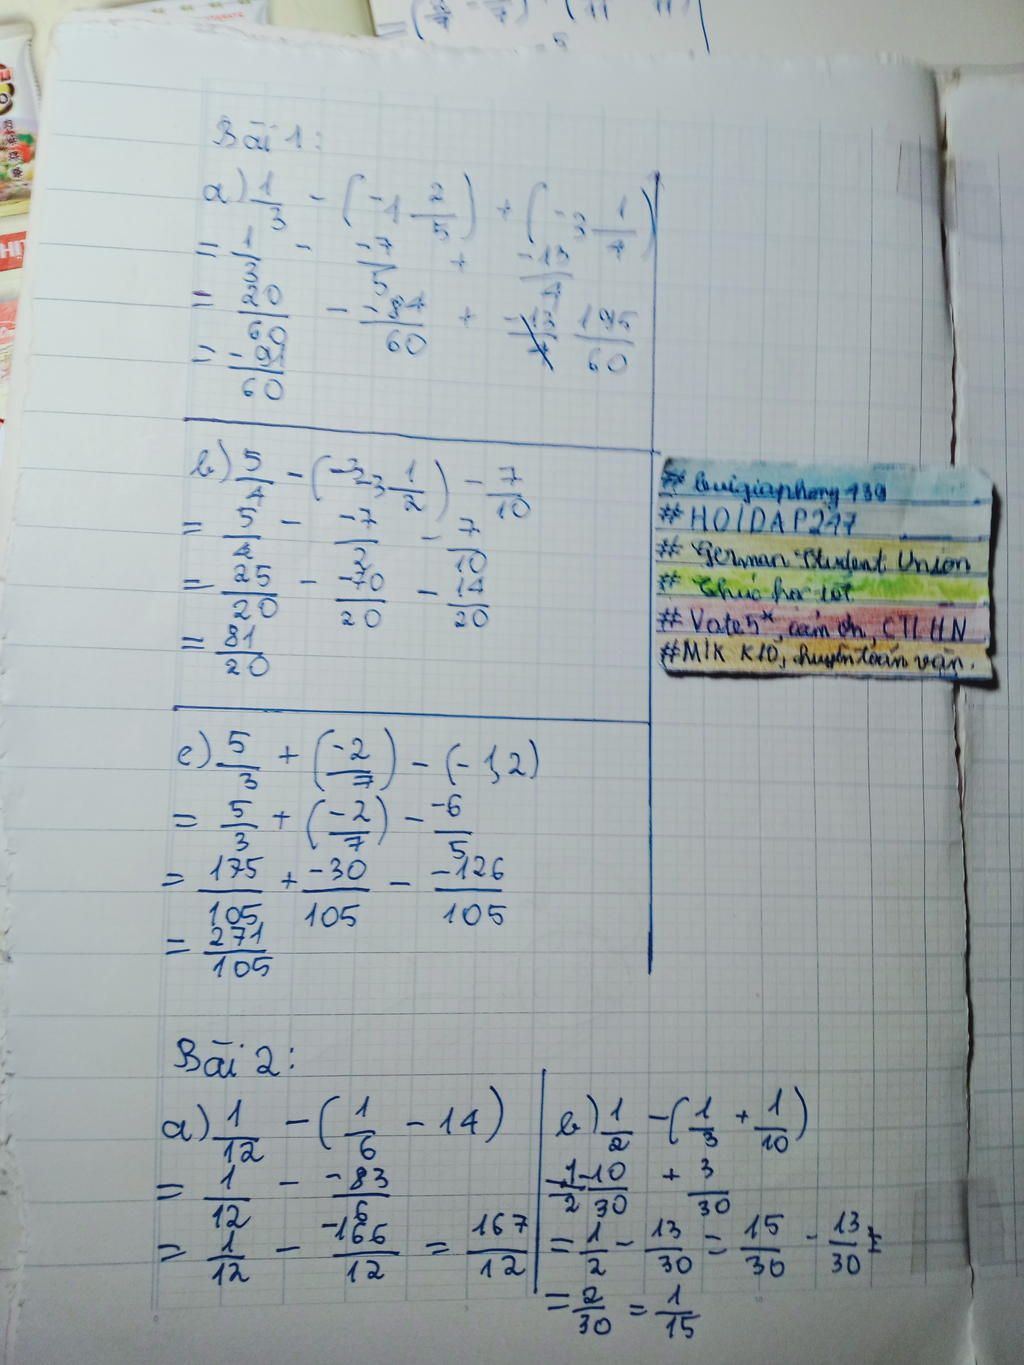 Bài 1:
a) 1/3 - (-1 2/5) + (-3 1/4)
= 1/3 - -7/5 + -13/4
= 20/60 - -84/60 + -13/4 195/60
= -91/60
b) 5/4 - (-3 1/2) - 7/10
= 5/4 - -7/2 - 7/10
= 25/20 - -70/20 - 14/20
= 81/20
c) 5/3 + (-2/7) - (-1,2)
= 5/3 + (-2/7) - -6/5
= 175/105 + -30/105 - -126/105
= 271/105
# buigiaphong139
# HOIDAP247
# German Student Union
# Chúc học tốt
# Vote 5*, cảm ơn, CTLHN
#MIK K10, chuyên toán văn.
Bài 2:
a) 1/12 - (1/6 - 14)
= 1/12 - -83/6
= 1/12 - -166/12 = 167/12
b) 1/2 - (1/3 + 1/10)
= 1/2 - 10/30 + 3/30
= 1/2 - 13/30 = 15/30 - 13/30 =
= 2/30 = 1/15